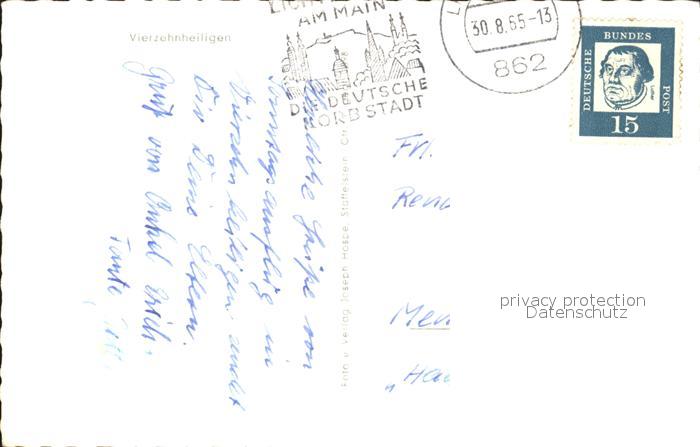 Vierzehnheiligen
AM MAIN
DIE DEUTSCHE
KORBSTADT
30.8.65-13
862
DEUTSCHE BUNDES POST
15
Herzliche Grüße von
Sonntagsausflug in
Vierzehnheiligen sendet
Dir Deine Eltern.
Gruß von Onkel Erich.
Tante
Foto u. Verlag Joseph Hospe, Staffelstein,
Frl.
privacy protection
Datenschutz